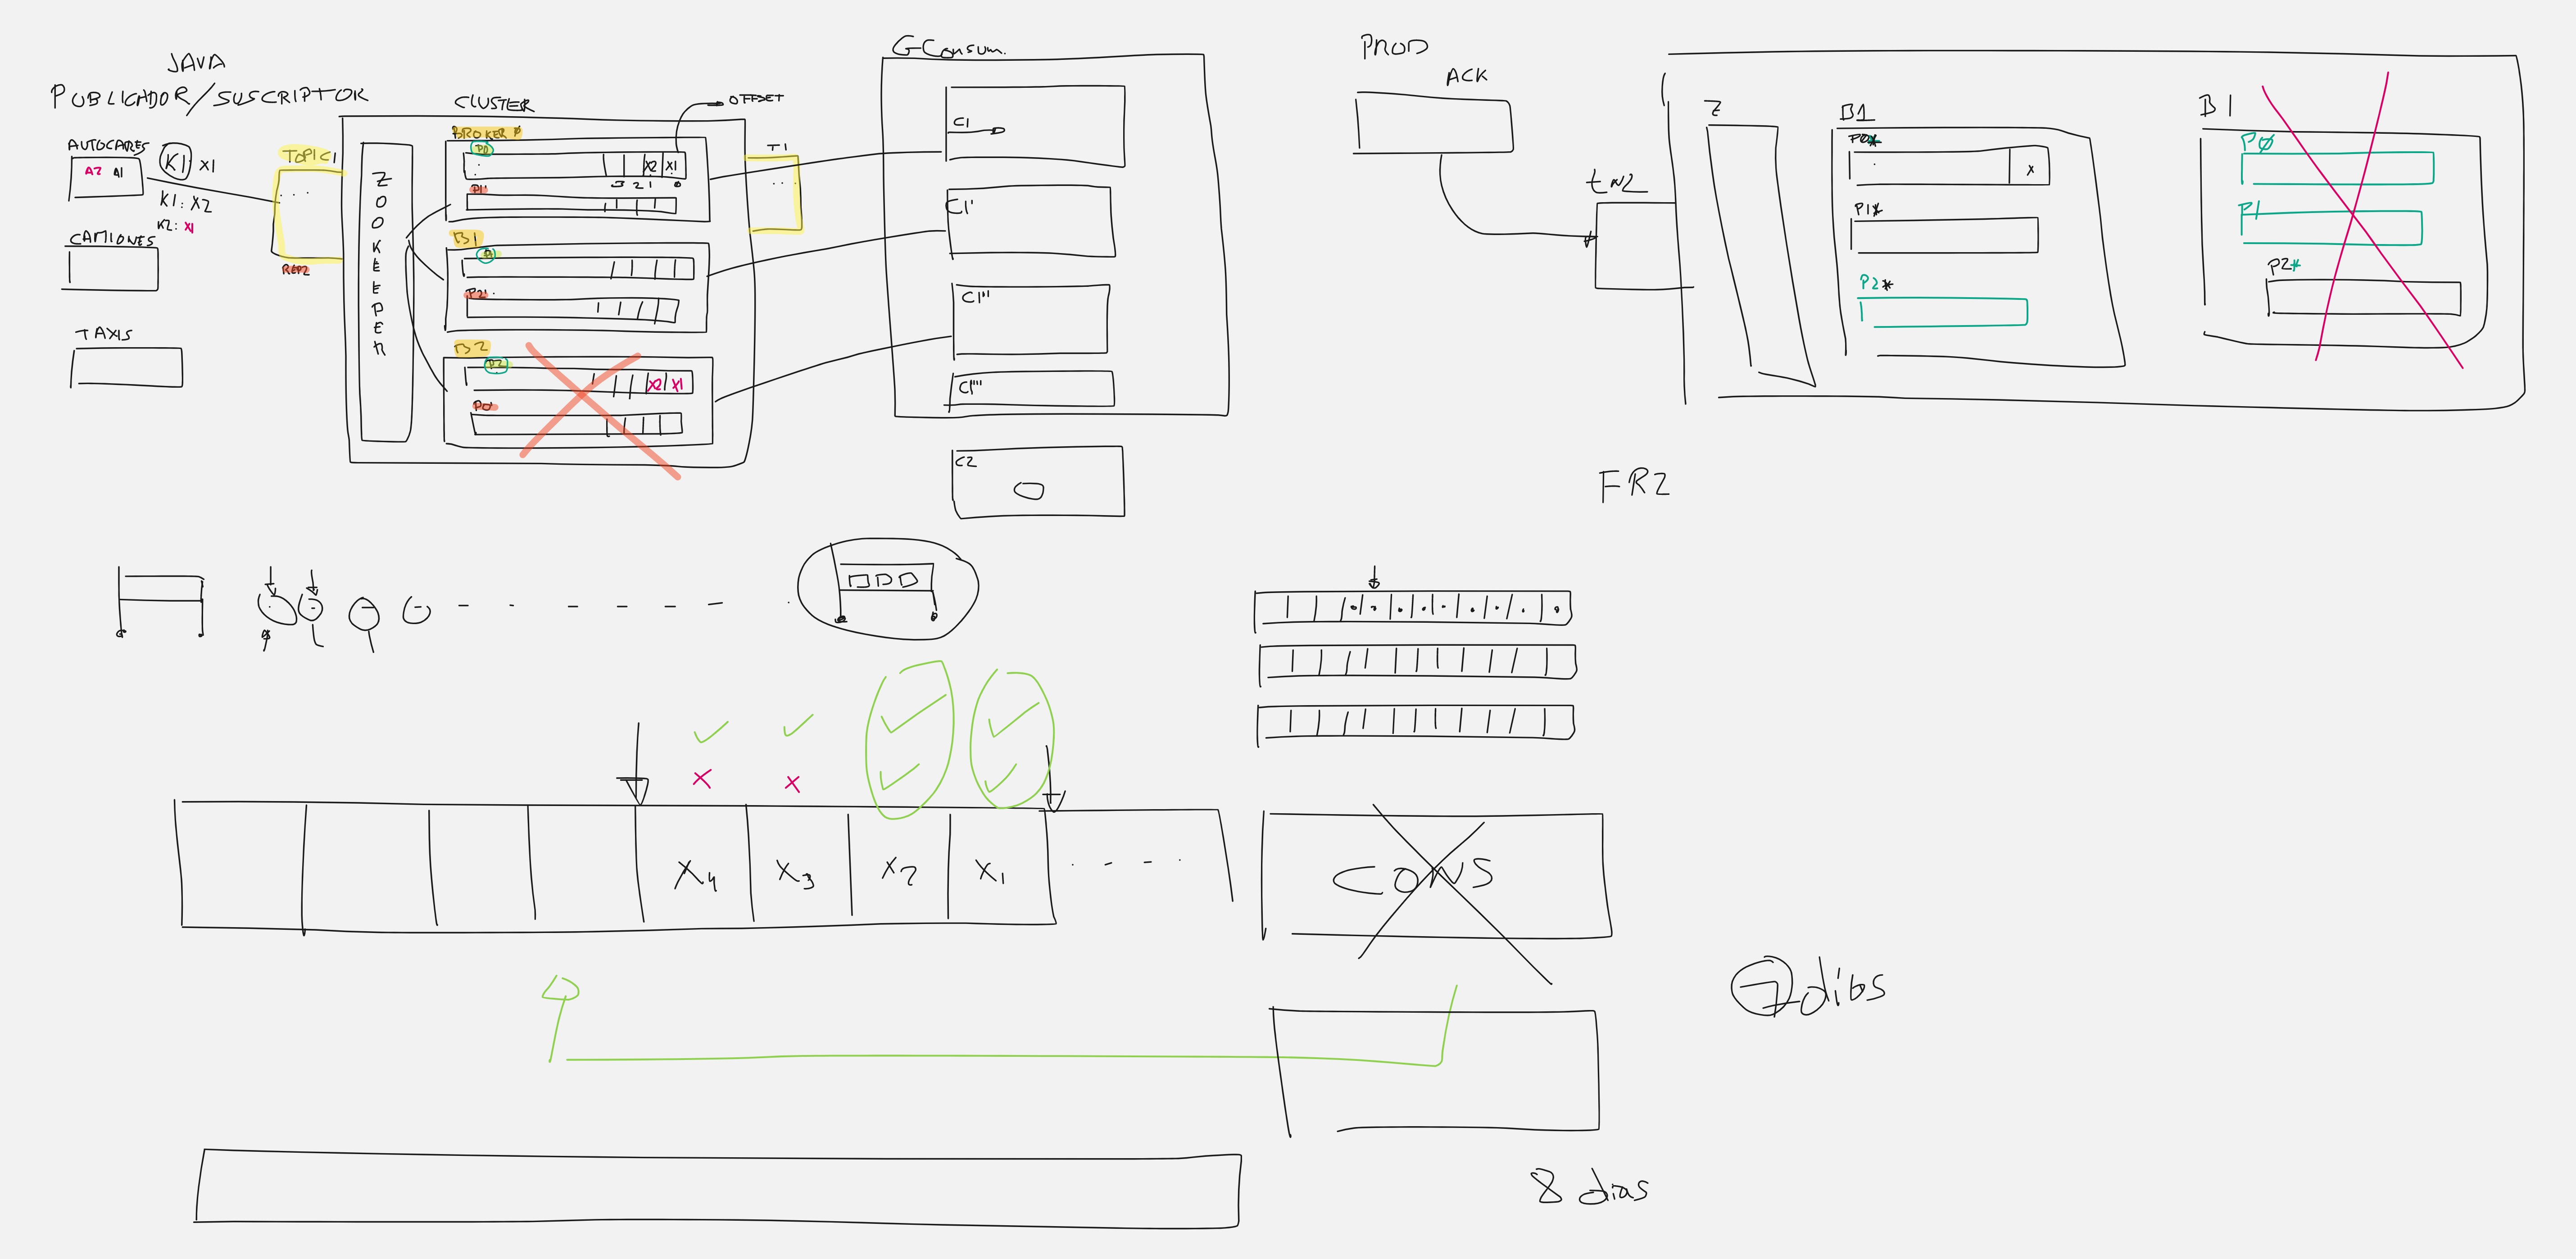 JAVA
PUBLICADOR/SUSCRIPTOR
AUTOCARES
A2 A1
K1: X1
K1: X2
K2: X1
CAMIONES
TAXIS
TOPIC1
REP2
CLUSTER
OFFSET
ZOOKEEPER
BROKER 0
P0
X2 X1
3 2 1 0
P1'
B1
P1
P2'
B2
P2
X2 X1
P0'
T1
GConsum.
C1
C1'
C1''
C1'''
C2
PROD
ACK
Z
B1
P0*
X
P1*
P2*
B1
P0
P1
P2*
FR2
X4 X3 X2 X1
CONS
7 dias
8 dias